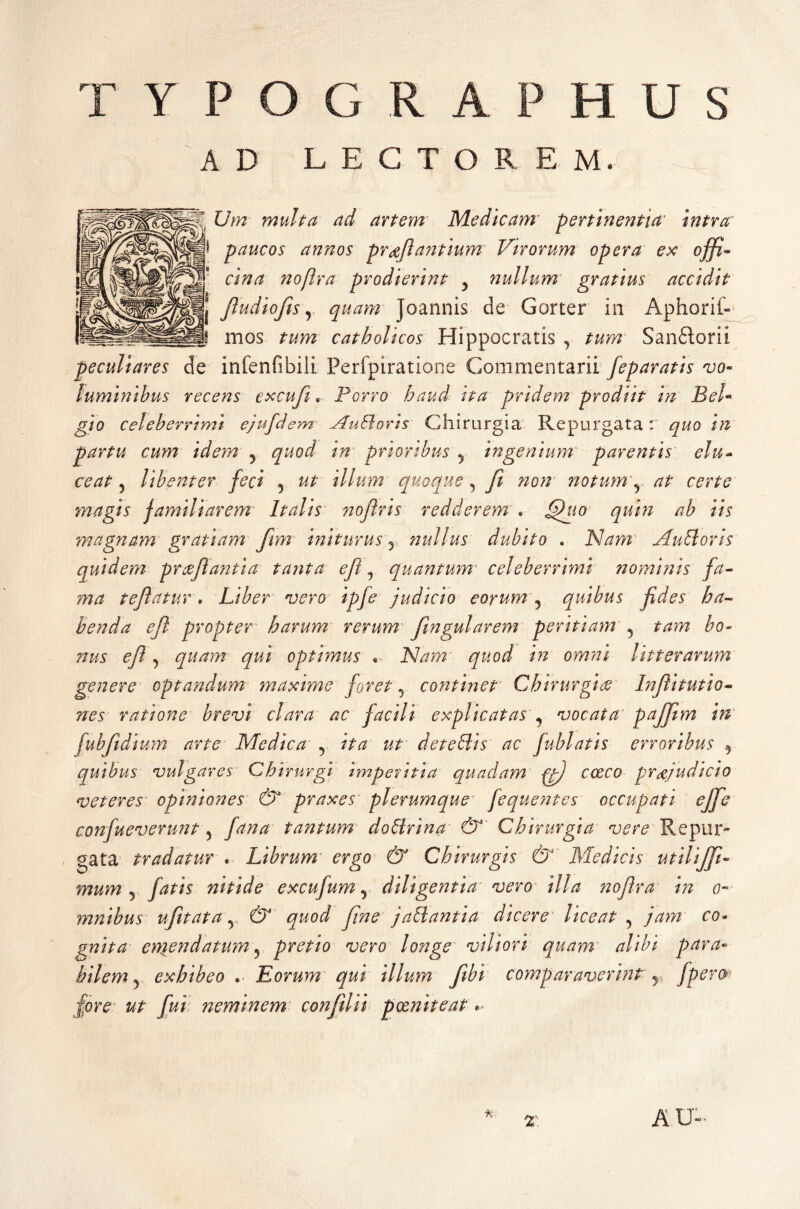 TYPOGRAPHUS
AD LECTOREM.
CUm multa ad artem Medicam pertinentia intra
paucos annos præſtantium Virorum opera ex offi-
cina noſtra prodierint, nullum gratius accidit
ſtudioſis, quam Joannis de Gorter in Aphoriſ-
mos tum catholicos Hippocratis, tum Sanctorii
peculiares de inſenſibili Perſpiratione Commentarii ſeparatis vo-
luminibus recens excuſi. Porro haud ita pridem prodiit in Bel-
gio celeberrimi ejuſdem Auctoris Chirurgia Repurgata: quo in
partu cum idem, quod in prioribus, ingenium parentis elu-
ceat, libenter feci, ut illum quoque, ſi non notum, at certe
magis familiarem Italis noſtris redderem. Quo quin ab iis
magnam gratiam ſim initurus, nullus dubito. Nam Auctoris
quidem præſtantia tanta eſt, quantum celeberrimi nominis fa-
ma teſtatur. Liber vero ipſe judicio eorum, quibus fides ha-
benda eſt propter harum rerum ſingularem peritiam, tam bo-
nus eſt, quam qui optimus. Nam quod in omni litterarum
genere optandum maxime foret, continet Chirurgiæ Inſtitutio-
nes ratione brevi clara ac facili explicatas, vocata paſſim in
ſubſidium arte Medica, ita ut detectis ac ſublatis erroribus,
quibus vulgares Chirurgi imperitia quadam & cœco præjudicio
veteres opiniones & praxes plerumque ſequentes occupati eſſe
conſueverunt, ſana tantum doctrina & Chirurgia vere Repur-
gata tradatur. Librum ergo & Chirurgis & Medicis utiliſſi-
mum, ſatis nitide excuſum, diligentia vero illa noſtra in o-
mnibus uſitata, & quod ſine jactantia dicere liceat, jam co-
gnita emendatum, pretio vero longe viliori quam alibi para-
bilem, exhibeo. Eorum qui illum ſibi comparaverint, ſpero
fore ut ſui neminem conſilii pœniteat.
* 2 AU-